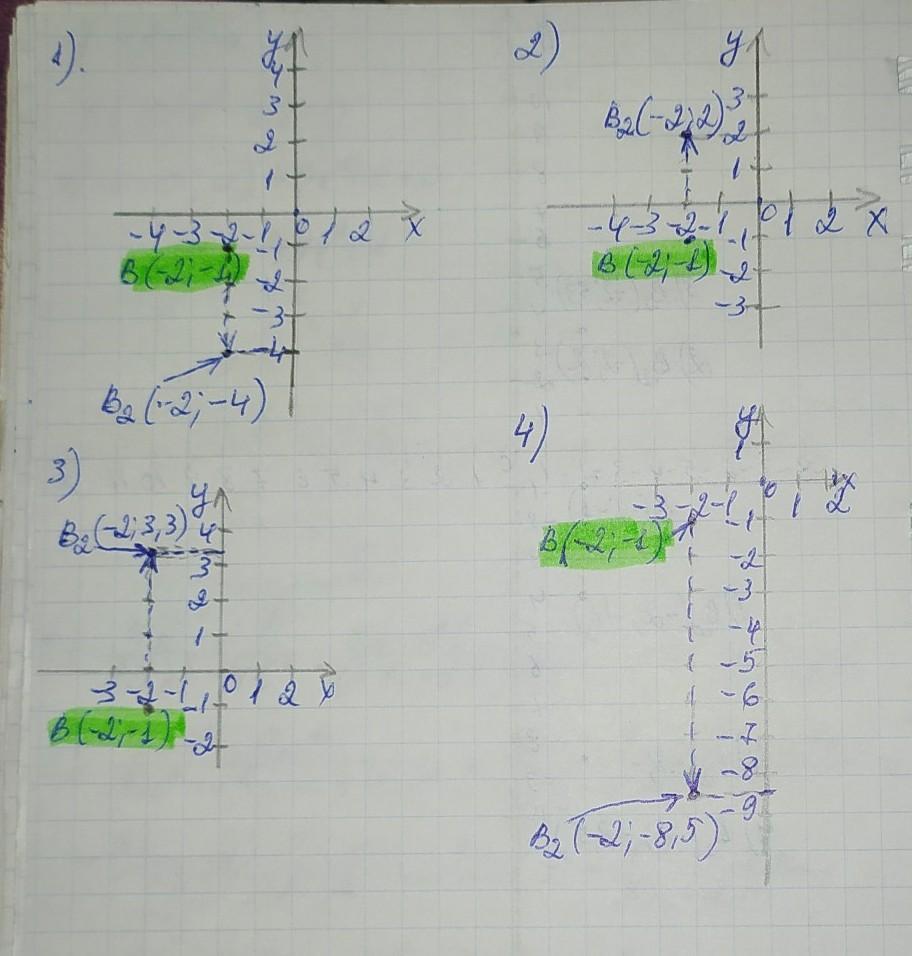 1).
y
4
3
2
1
-4 -3 -2 -1 0 1 2 x
-1
B(-2;-1)
-2
-3
-4
B2(-2;-4)
2)
y
3
B2(-2;2)
2
1
-4 -3 -2 -1 0 1 2 x
-1
B(-2;-1)
-2
-3
3)
y
B2(-2;3,3)
4
3
2
1
-3 -2 -1 0 1 2 x
-1
B(-2;-1)
-2
4)
y
1
-3 -2 -1 0 1 2 x
-1
B(-2;-1)
-2
-3
-4
-5
-6
-7
-8
-9
B2(-2;-8,5)